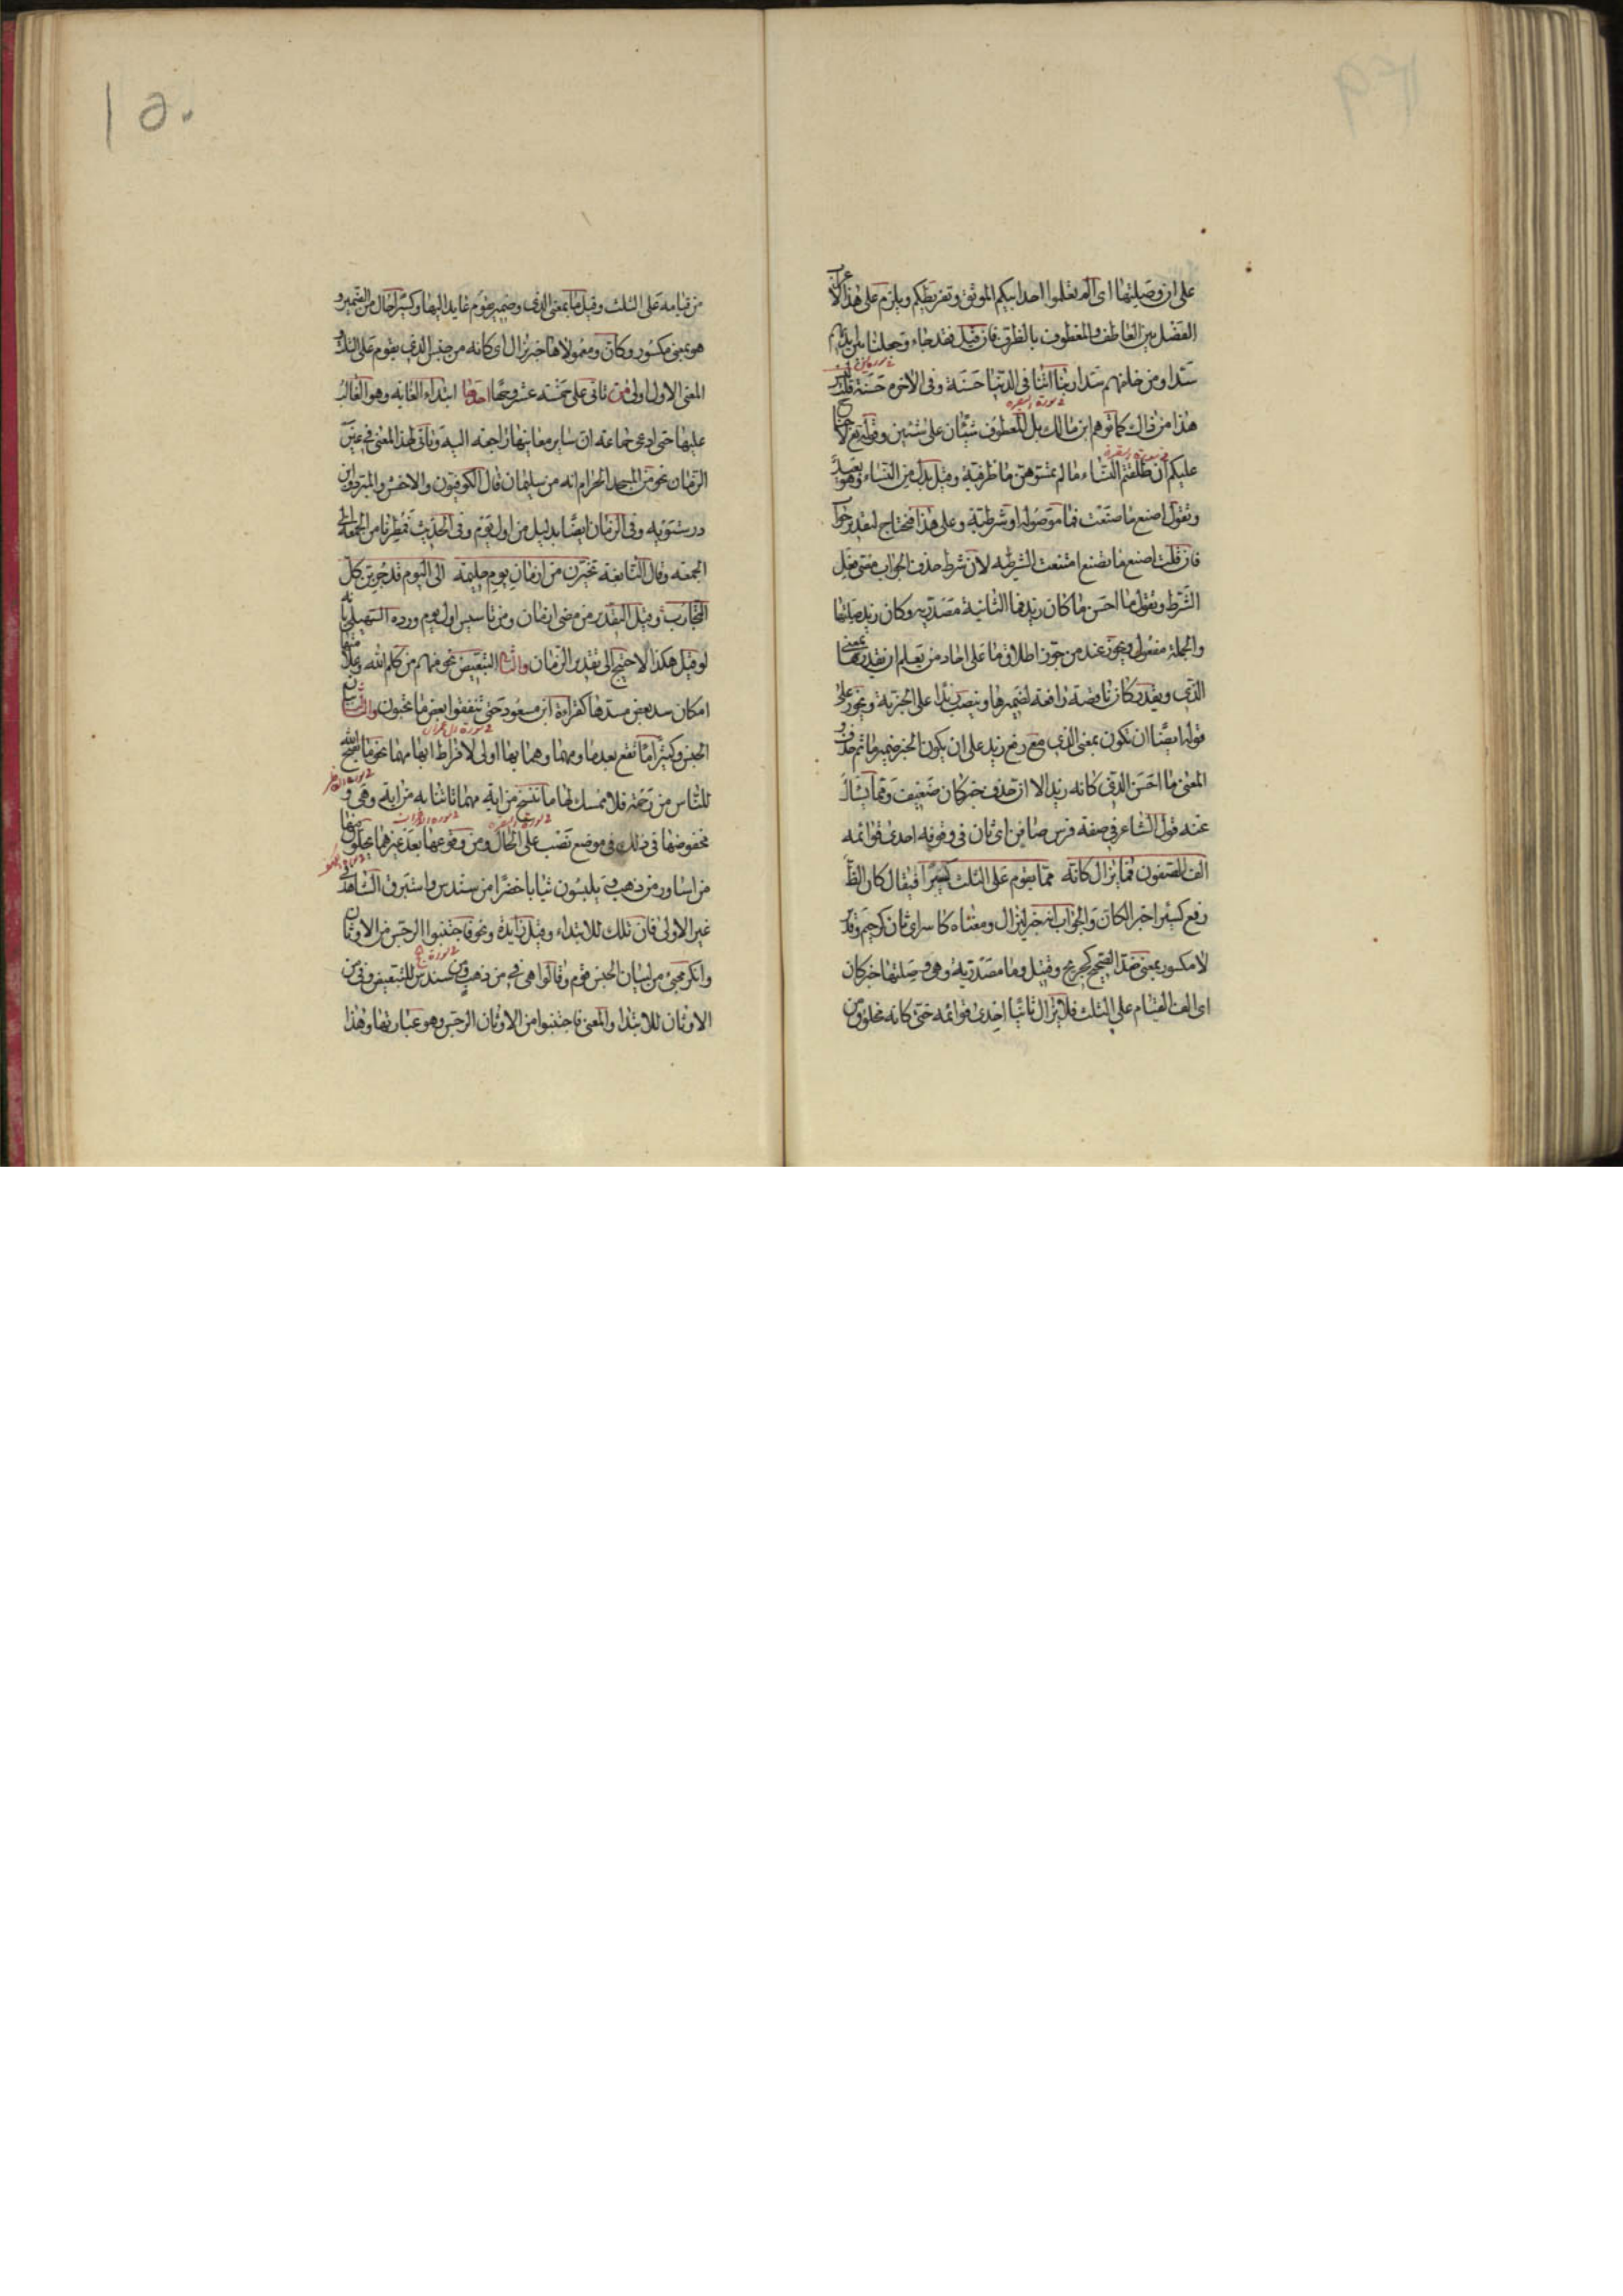 على ان وصلتها اى الم تعلموا اخذ ابيكم الموثق وتفريطكم ويلزم على هذا الاعراب
الفصل بين العاطف والمعطوف بالظرف فان قيل قد جاء وجعلنا من بين ايديهم
سدا ومن خلفهم سدا ربنا اتنا فى الدنيا حسنة وفى الاخرة حسنة قلت ليس
هذا من ذاك كما توهم ابن مالك بل المعطوف شيئان على شيئين وقوله تع لا جناح
عليكم ان طلقتم النساء ما لم تمسوهن ما ظرفية وقيل بدل من النساء وهو بعيد
وتقول اصنع ما صنعت فما موصولة او شرطية وعلى هذا فتحتاج لتقدير جواب
فان قلت اصنع ما تصنع امتنعت الشرطية لان شرط حذف الجواب مضى فعل
الشرط وتقول ما احسن ما كان زيد فما الثانية مصدرية وكان زيد صلتها
والجملة مفعول ويجوز عند من جوز اطلاق ما على احاد من يعلم ان تقدرها بمعنى
الذى ويقدر كان ناقصة رافعة لضميرها وينصب زيدا على الخبرية ويجوز على
قوله ايضا ان تكون بمعنى الذى مع رفع زيد على ان يكون الخبر ضمير ما ثم حذف و
المعنى ما احسن الذى كانه زيد الا ان حذف خبر كان ضعيف ومما يسال
عنه قول الشاعر فى صفة فرس صافن اى ثان فى وقوفه احدى قوائمه
الف الصفون فما يزال كانه مما يقوم على الثلث كسيرا فيقال كان الظاهر
رفع كسيرا خبرا لكان والجواب انه خبر ليزال ومعناه كاسر اى ثان كرحيم وقدير
لا مكسور بمعنى ضد الصحيح كجريح وقيل وما مصدرية وهى وصلتها خبر كان
اى الف القيام على الثلث فلا يزال ثانيا احدى قوائمه حتى كانه مخلوق من
١٥٠
من قيامه على الثلث وقيل ما بمعنى الذى وضمير يقوم عايد اليها وكسيرا حال من الضمير و
هو بمعنى مكسور وكان ومعمولاها خبر يزال اى كانه من جنس الذى يقوم على الثلث و
المعنى الاول اولى من تاتى على خمسة عشر وجها احدها ابتداء الغاية وهو الغالب
عليها حتى ادعى جماعة ان ساير معانيها راجعة اليه وتاتى لهذا المعنى فى غير
الزمان نحو من المسجد الحرام انه من سليمان قال الكوفيون والاخفش والمبرد وابن
درستويه وفى الزمان ايضا بدليل من اول يوم وفى الحديث فمطرنا من الجمعة الى
الجمعة وقال النابغة تخيرن من ازمان يوم حليمة الى اليوم قد جربن كل
التجارب وقيل التقدير من مضى ازمان ومن تاسيس اول يوم ورده السهيلى بانه
لو قيل هكذا لاحتيج الى تقدير الزمان والثانى التبعيض نحو منهم من كلم الله وعلامتها
امكان سد بعض مسدها كقراءة ابن مسعود حتى تنفقوا بعض ما تحبون والثالث بيان
الجنس وكثيرا ما تقع بعد ما ومهما وهما بها اولى لافراط ابهامهما نحو ما يفتح الله
للناس من رحمة فلا ممسك لها ما ننسخ من اية مهما تاتنا به من اية وهى و
مخفوضها فى ذلك فى موضع نصب على الحال ومن وقوعها بعد غيرهما يحلون فيها
من اساور من ذهب و يلبسون ثيابا خضرا من سندس واستبرق الشاهد فى
غير الاولى فان تلك للابتداء وقيل زايدة ونحو فاجتنبوا الرجس من الاوثان
وانكر مجىء من لبيان الجنس قوم وقالوا هى فى من ذهب ومن سندس للتبعيض وفى من
الاوثان للابتداء والمعنى فاجتنبوا من الاوثان الرجس وهو عبادتها وهذا